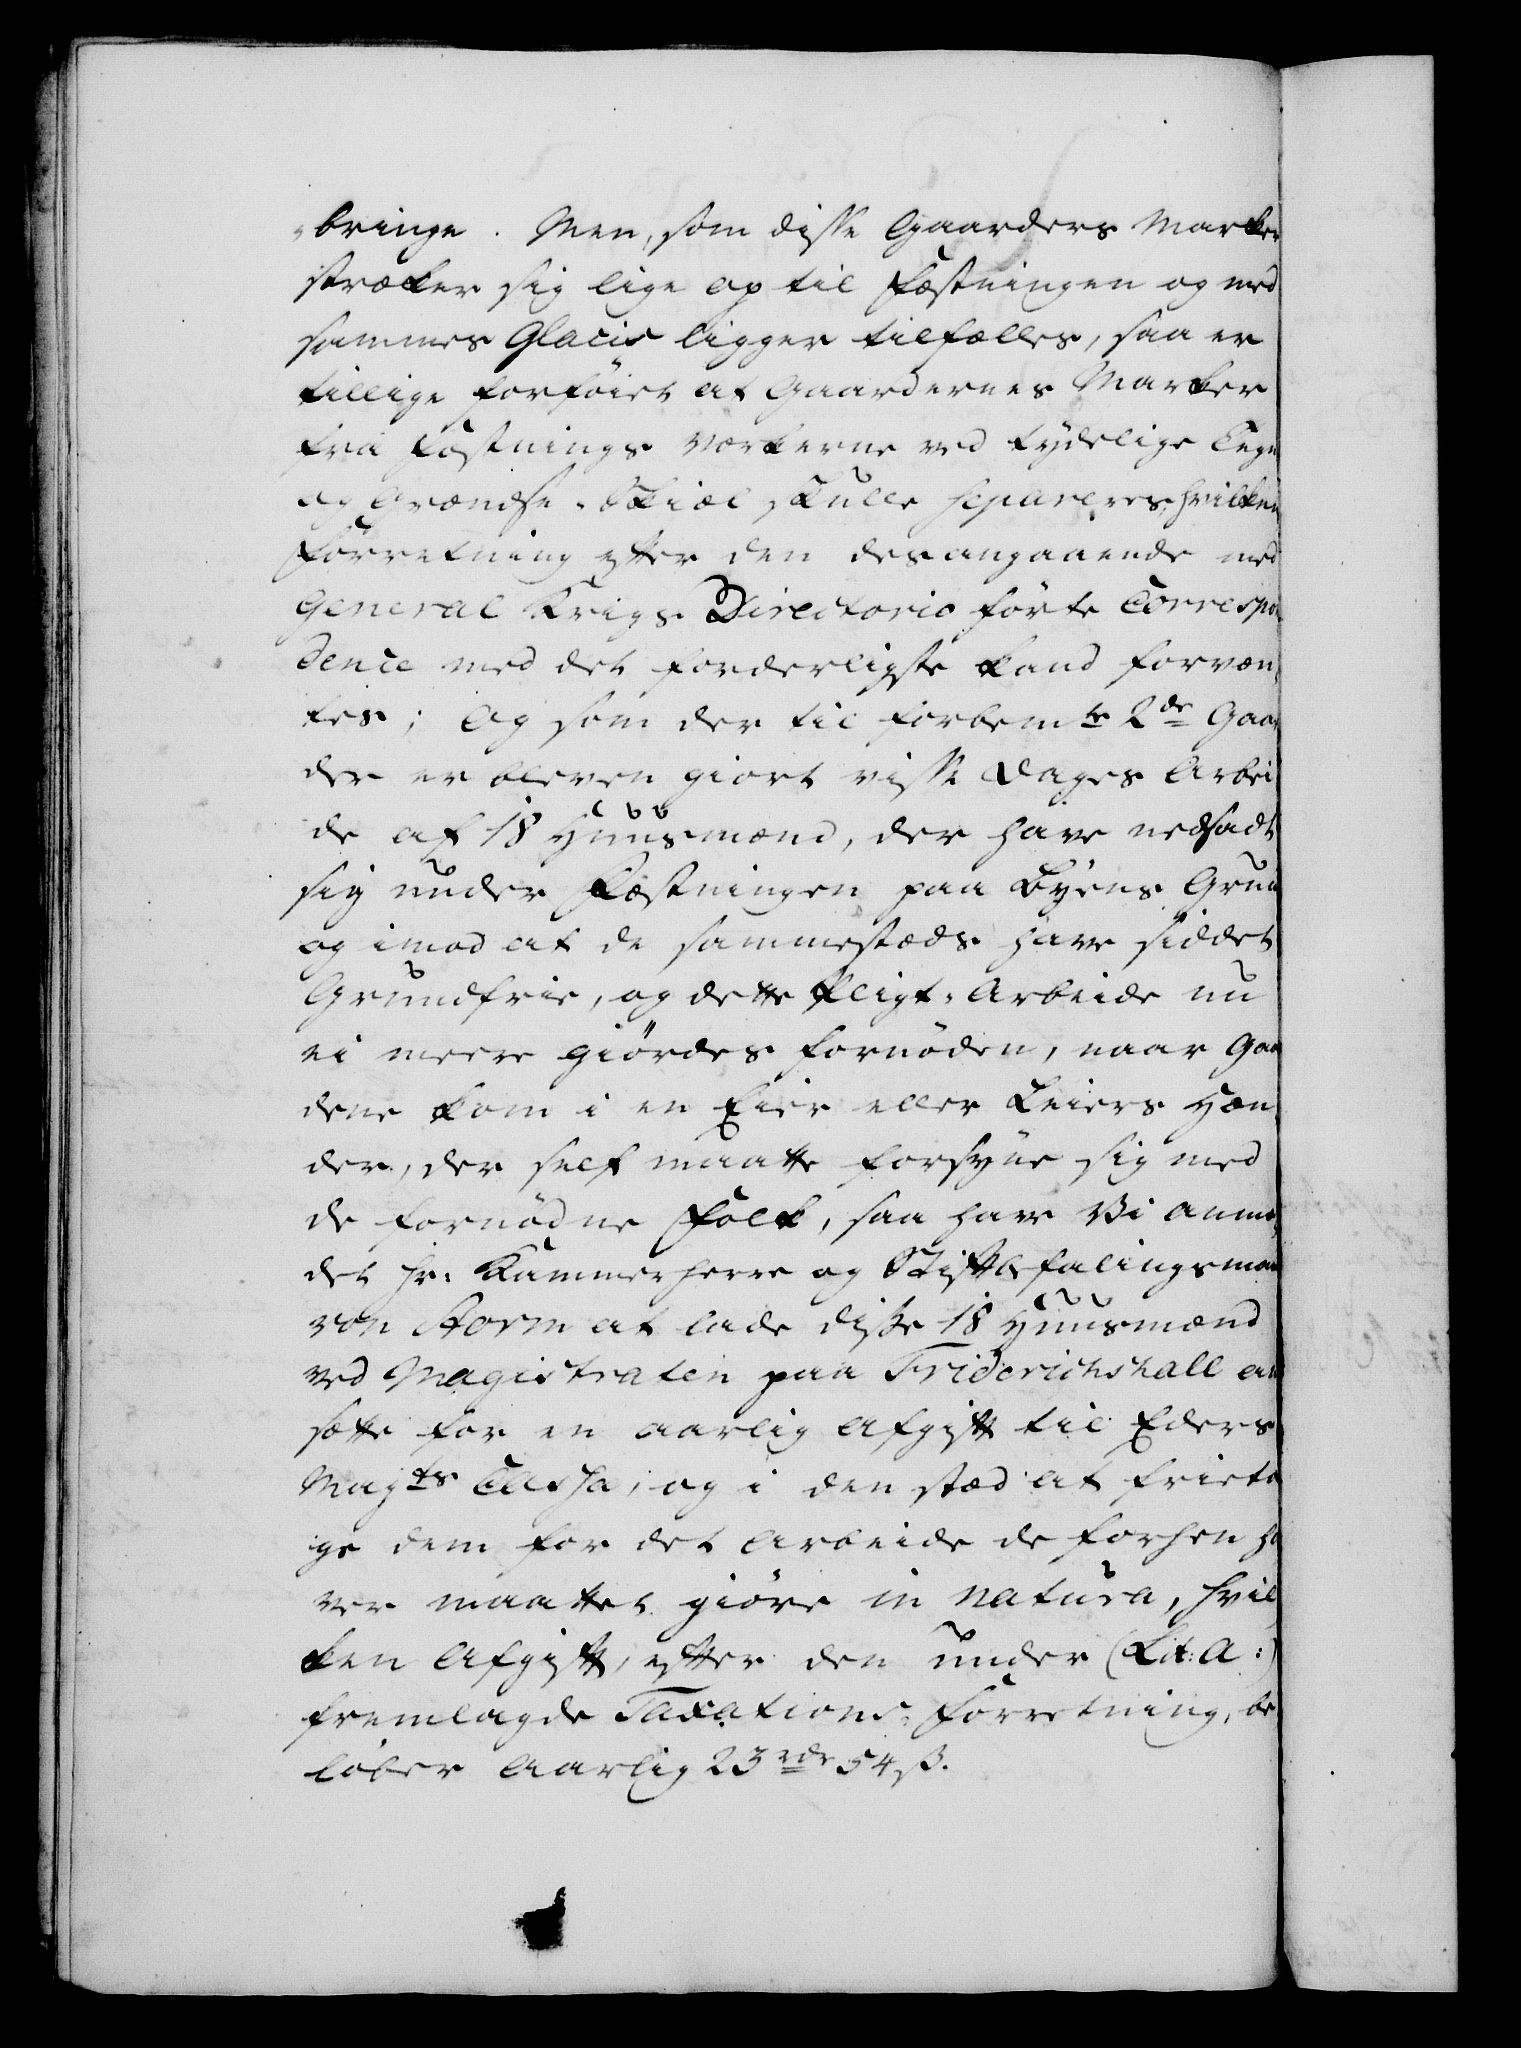 bringe. Men, som disse Gaarders Marker
strækker sig lige op til Fæstningen og med
sammes Glacis ligger tilfælles, saa er
tillige forføiet at Gaardernes Marker
fra Fæstnings Værkerne ved tydelige Tegn
og Grændse-Skiæl skulle separeres, hvilken
Forretning efter den desangaaende med
General Krigs Directorio førte Correspon
dence med det forderligste kand forven-
tes; Og som der til forbemte 2de Gaar
der er bleven giort visse Dages Arbei
de af 18 Huusmænd, der have nedsadt
sig under Fæstningen paa Byens Grund
og imod at de sammestæds have siddet
Grundfrie, og dette Pligt-Arbeide nu
ei meere giördes fornøden, naar Gaar
dene kom i en Eier eller Leiers Hæn-
der, der self maatte forsyne sig med
de fornødne Folk, saa have Vi anmo-
det Hr: Kammerherre og Stiftbefalingsmand
von Storm at lade disse 18 Huusmænd
ved Magistraten paa Friderichshall an
sætte for en aarlig Afgift til Eders
Mayts Cassa, og i den stæd at frieta
ge dem for det Arbeide de forhen ha
ver maattet giøre in natura, hvil
ken Afgift, efter den under (Lit: A:)
fremlagde Taxations-Forretning, be
løber Aarlig 23 rdr 54 ß.